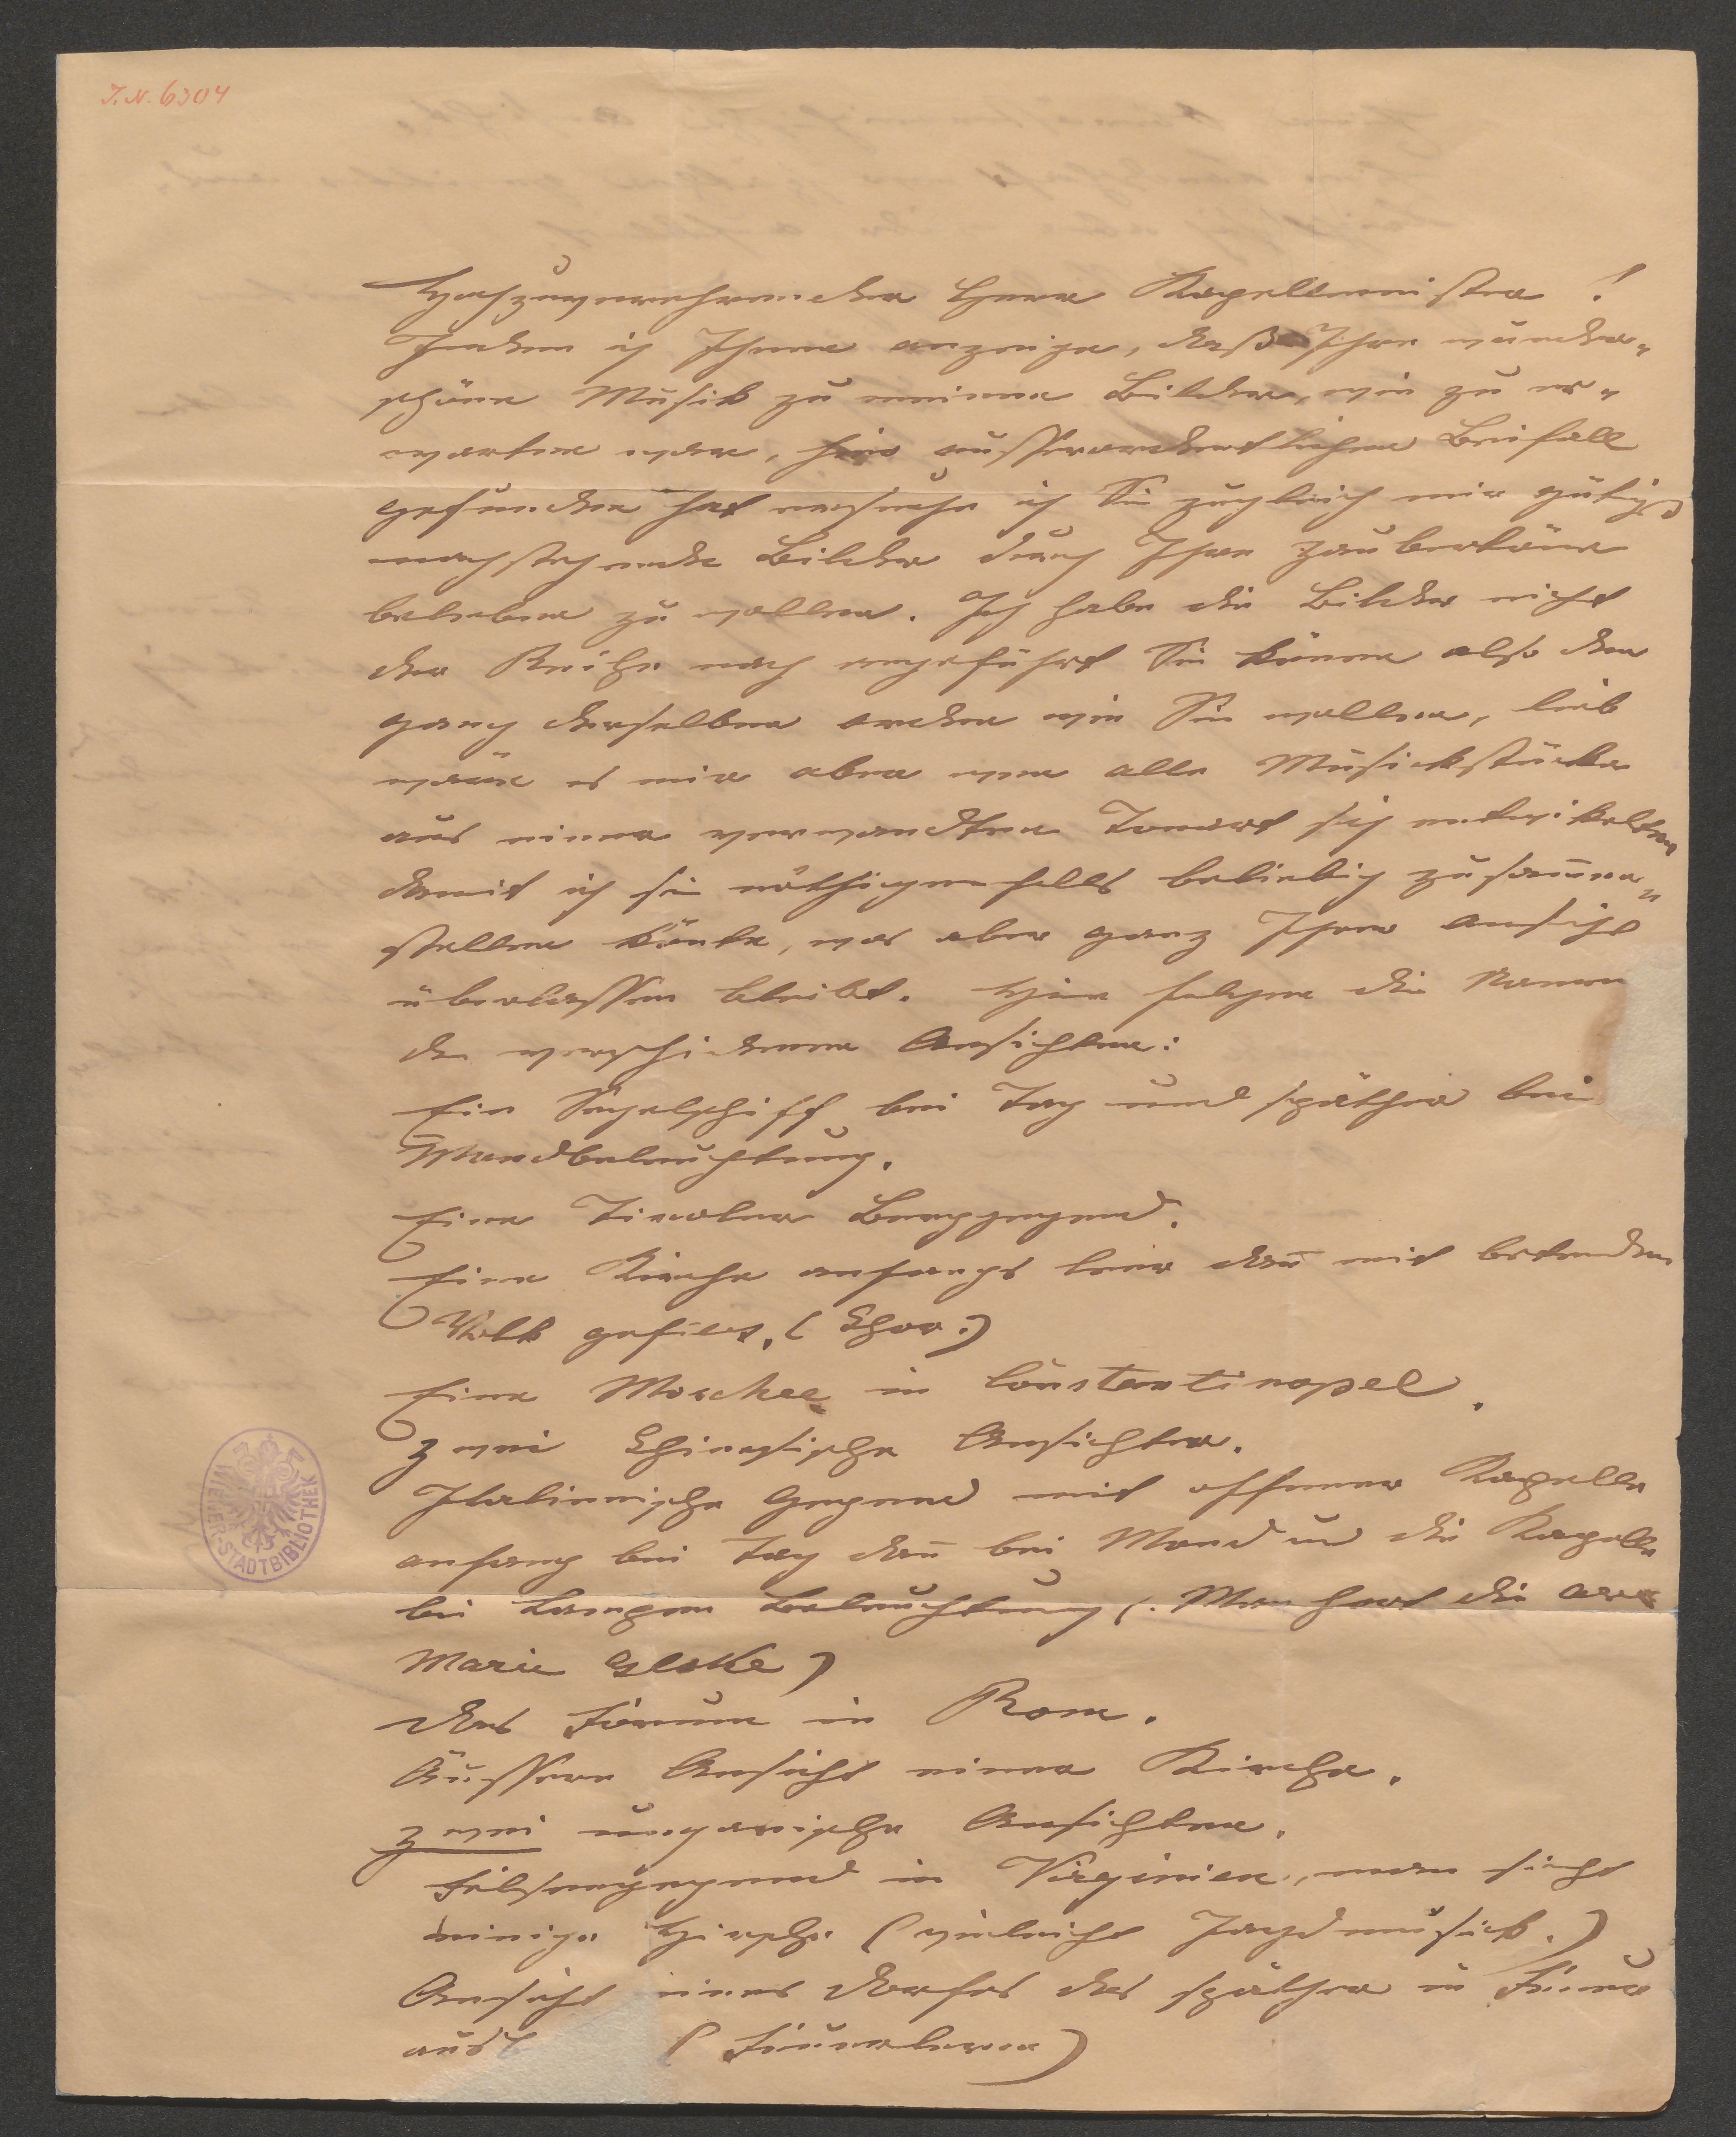 I.N. 6304
Hochzuverehrender Herr Kapellmeister!
Indem ich Ihnen anzeige, daß Ihre wunder„
schöne Musik zu meinen Bildern, wie zu er„
warten war, hier ausserordentlichen Beifall
gefunden hat ersuche ich Sie zugleich mir gütigst
nachstehende Bilder durch Ihre Zaubertöne
beleben zu wollen. Ich habe die Bilder nicht
der Reihe nach angeführt Sie könen also den
gang derselben orden wie Sie wollen, lieb
wäre es mir aber wen alle Musickstücke
aus einer verwandten Tonart sich entwikelten
damit ich sie nöthigenfalls beliebig zusam̄en„
stellen könte, was aber ganz Ihrer ansicht
überlassen bleibt. Hier folgen die Namen
der verschiedenen Ansichten:
Ein Segelschiff bei Tag und späther bei
Mondbeleuchtung.
Eine Tiroler Berggegend.
Eine Kirche anfangs leer dan̄ mit betenden
Volk gefült. (Chor.)
Eine Moschee in Constantinopel.
Zwei Chinesische Ansichten.
Italienische Gegend mit offener Kapelle
anfang bei Tag dan̄ bei Mond und die Kapelle
bei Lampen Beleuchtung (. Man hört die ave
Marie Gloke)
Das Forum in Rom.
Äussere Ansicht einer Kirche.
Zwei ungarische Ansichten.
Felsengegend in Virginien, man sieht
einige Hirsche (vieleicht Jagdmusick.)
Ansicht eines Dorfes das späther in Feuer
(Feuerlerm)
WIENER-STADTBIBLIOTHEK